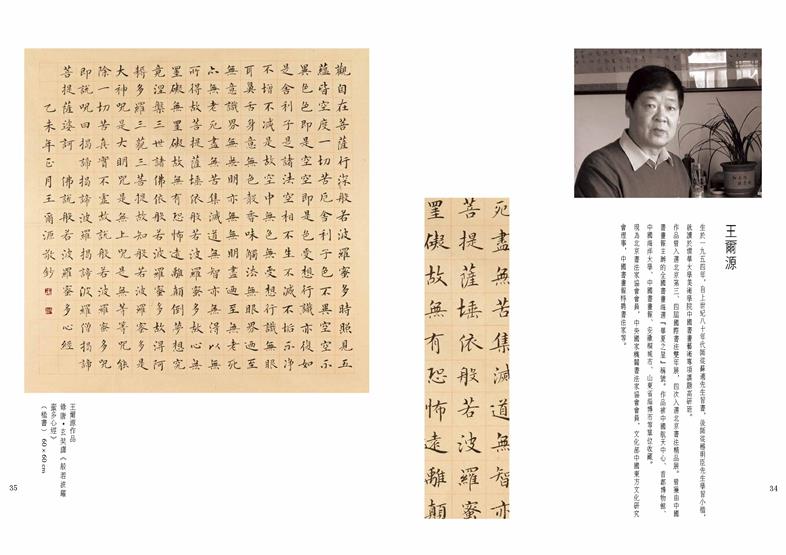 王爾源
生於一九五四年,自上世紀八十年代師從蘇適先生習書,後師從楊明臣先生學習小楷,
就讀於清華大學美術學院中國書畫藝術專項課題高研班。
作品曾入選北京第三、四屆國際書法雙年展,四次入選北京書法精品展。曾獲由中國
書畫報主辦的全國書畫海選『華夏之星』稱號。作品被中國航天中心、首都博物館、
中國海洋大學、中國書畫報、安徽桐城市、山東省淄博市等單位收藏。
現為北京書法家協會會員,中央國家機關書法家協會會員,文化部中國東方文化研究
會理事,中國書畫報特聘書法家等。
死盡無苦集滅道無智亦
菩提薩埵依般若波羅蜜
罣礙故無有恐怖遠離顛
34
觀自在菩薩行深般若波羅蜜多時照見五
蘊皆空度一切苦厄舍利子色不異空空不
異色色即是空空即是色受想行識亦復如
是舍利子是諸法空相不生不滅不垢不淨
不增不減是故空中無色無受想行識無眼
耳鼻舌身意無色聲香味觸法無眼界乃至
無意識界無無明亦無無明盡乃至無老死
亦無老死盡無苦集滅道無智亦無得以無
所得故菩提薩埵依般若波羅蜜多故心無
罣礙無罣礙故無有恐怖遠離顛倒夢想究
竟涅槃三世諸佛依般若波羅蜜多故得阿
耨多羅三藐三菩提故知般若波羅蜜多是
大神咒是大明咒是無上咒是無等等咒能
除一切苦真實不虛故說般若波羅蜜多咒
即說咒曰揭諦揭諦波羅揭諦波羅僧揭諦
菩提薩婆訶 佛說般若波羅蜜多心經
乙未年正月王爾源敬鈔
王爾源作品
錄唐·玄奘譯《般若波羅
蜜多心經》
(楷書) 60×60cm
35